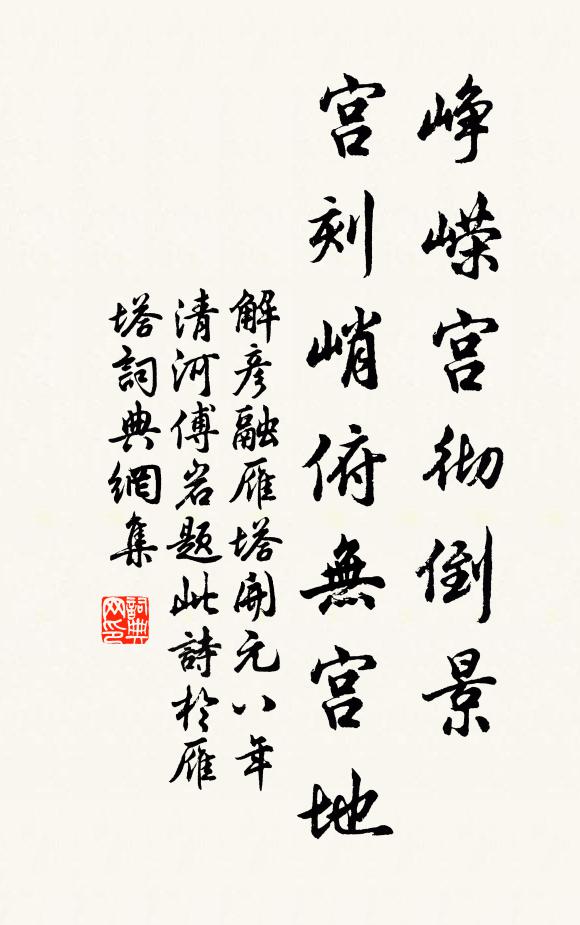 峥嵘宫彻倒景
宫刻峭俯無宫地
解彦融雁塔開元八年
清河傅岩题此詩於雁
塔詞典網集
詞典网印